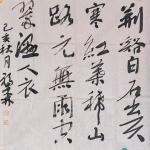 荆谿白石出天
寒紅葉稀山
路元無雨空
翠濕人衣
秋月